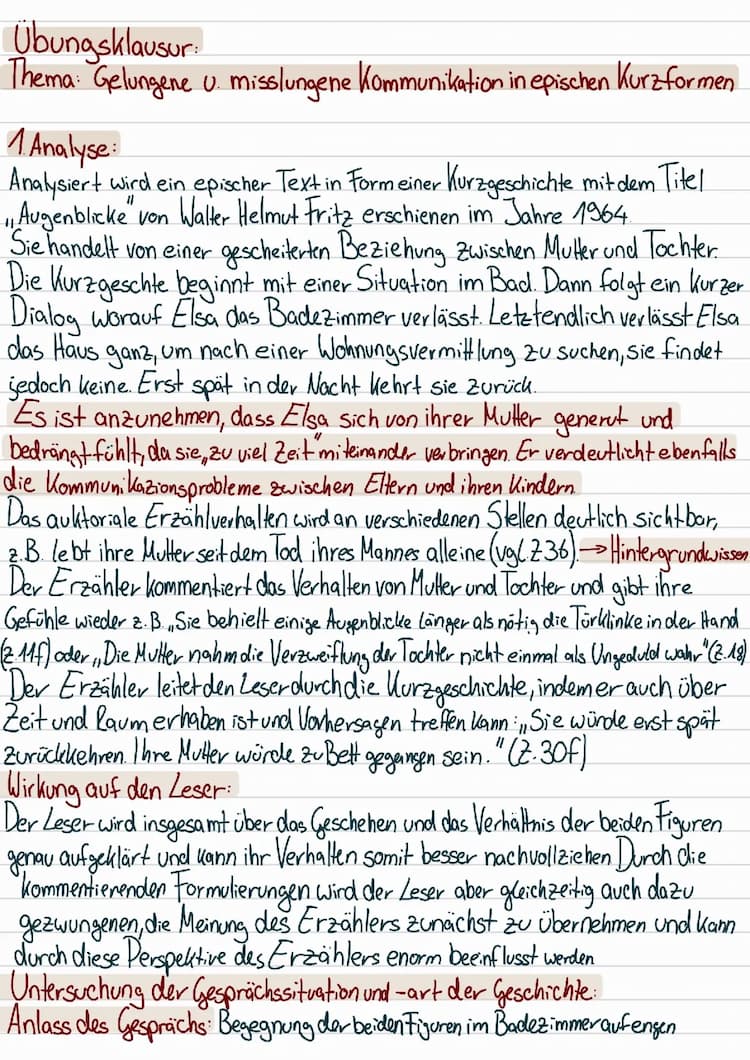 Übungsklausur:
Thema: Gelungene u. misslungene Kommunikation in epischen Kurzformen
1. Analyse:
Analysiert wird ein epischer Text in Form einer Kurzgeschichte mit dem Titel
„Augenblicke" von Walter Helmut Fritz erschienen im Jahre 1964.
Sie handelt von einer gescheiterten Beziehung zwischen Mutter und Tochter.
Die Kurzgeschte beginnt mit einer Situation im Bad. Dann folgt ein kurzer
Dialog worauf Elsa das Badezimmer verlässt. Letztendlich verlässt Elsa
das Haus ganz, um nach einer Wohnungsvermittlung zu suchen, sie findet
jedoch keine. Erst spät in der Nacht kehrt sie zurück.
Es ist anzunehmen, dass Elsa sich von ihrer Mutter genervt und
bedrängt fühlt, da sie „zu viel Zeit" miteinander verbringen. Er verdeutlicht ebenfalls
die Kommunikazionsprobleme zwischen Eltern und ihren Kindern.
Das auktoriale Erzählverhalten wird an verschiedenen Stellen deutlich sichtbar,
z.B. lebt ihre Mutter seit dem Tod ihres Mannes alleine (vgl. Z 36). → Hintergrundwissen
Der Erzähler kommentiert das Verhalten von Mutter und Tochter und gibt ihre
Gefühle wieder z.B. „Sie behielt einige Augenblicke länger als nötig die Türklinke in der Hand
(Z. 11f) oder „Die Mutter nahm die Verzweiflung der Tochter nicht einmal als Ungeduld wahr" (Z. 18)
Der Erzähler leitet den Leser durch die Kurzgeschichte, indem er auch über
Zeit und Raum erhaben ist und Vorhersagen treffen kann: „Sie würde erst spät
zurückkehren. Ihre Mutter würde zu Bett gegangen sein." (Z. 30f)
Wirkung auf den Leser:
Der Leser wird insgesamt über das Geschehen und das Verhältnis der beiden Figuren
genau aufgeklärt und kann ihr Verhalten somit besser nachvollziehen. Durch die
kommentierenden Formulierungen wird der Leser aber gleichzeitig auch dazu
gezwungenen, die Meinung des Erzählers zunächst zu übernehmen und kann
durch diese Perspektive des Erzählers enorm beeinflusst werden
Untersuchung der Gesprächssituation und -art der Geschichte:
Anlass des Gesprächs: Begegnung der beiden Figuren im Badezimmer auf engen